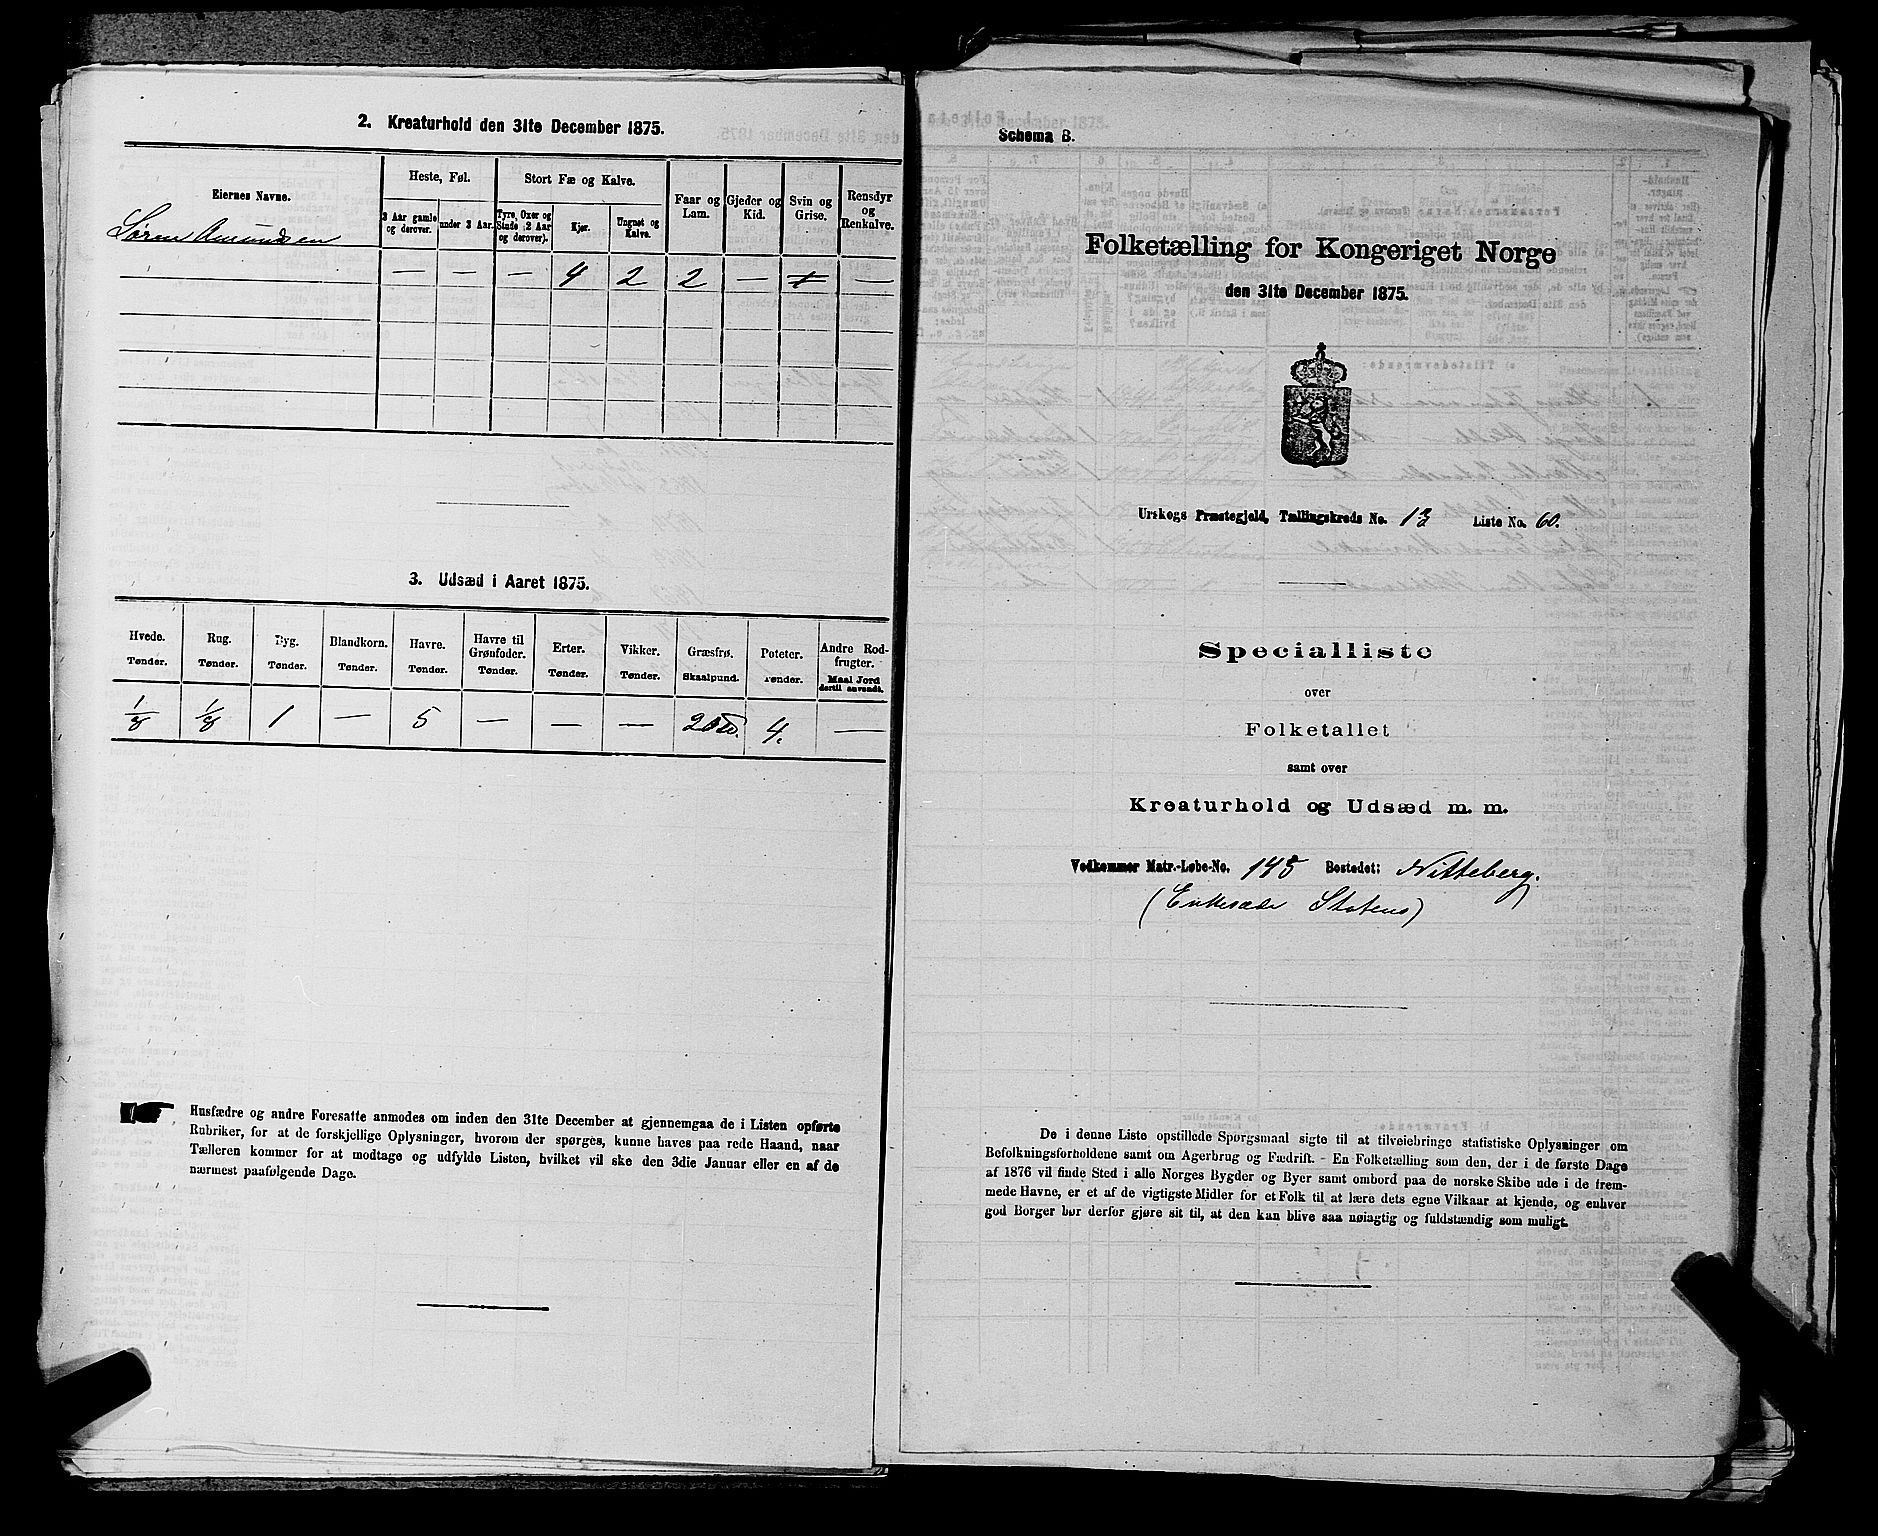 2. Kreaturhold den 31te December 1875.
Eiernes Navne.
Heste, Føl.
Stort Fæ og Kalve.
Faar og Lam.
Gjeder og Kid.
Svin og Grise.
Rensdyr og Renkalve.
3 Aar gamle og derover.
under 3 Aar.
Tyre, Oxer og Stude, 2 Aar og derover).
Kjør.
Ungnøt og Kalve.
Søren Amundsen
— — — 4 2 2 — —
3. Udsæd i Aaret 1875.
Hvede. Rug. Byg. Blandkorn. Havre. Havre til Grønfoder. Erter. Vikker. Græsfrø. Poteter. Andre Rodfrugter.
Tønder. Tønder. Tønder. Tønder. Tønder. Tønder. Tønder. Tønder. Skaalpund. Tønder. Maal Jord dertil anvendt.
1/8 1/8 1 — 5 — — — 4. —
Husfædre og andre Foresatte anmodes om inden den 31te December at gjennemgaa de i Listen opførte
Rubriker, for at de forskjellige Oplysninger, hvorom der spørges, kunne haves paa rede Haand, naar
Tælleren kommer for at modtage og udfylde Listen, hvilket vil ske den 3die Januar eller en af de
nærmest paafølgende Dage.
Schema B.
Folketælling for Kongeriget Norge
den 31te December 1875.
Urskogs Præstegjeld, Tællingskreds No. 13 Liste No. 60.
Specialliste
over
Folketallet
samt over
Kreaturhold og Udsæd m. m.
Vedkommer Matr.-Løbe-No. 145 Bostedet: Nitteberg.
(Enkesæde Statens)
De i denne Liste opstillede Spørgsmaal sigte til at tilveiebringe statistiske Oplysninger om
Befolkningsforholdene samt om Agerbrug og Fædrift. - En Folketælling som den, der i de første Dage
af 1876 vil finde Sted i alle Norges Bygder og Byer samt ombord paa de norske Skibe ude i de frem-
mede Havne, er et af de vigtigste Midler for et Folk til at lære dets egne Vilkaar at kjende, og enhver
god Borger bør derfor gjøre sit til, at den kan blive saa nøiagtig og fuldstændig som muligt.